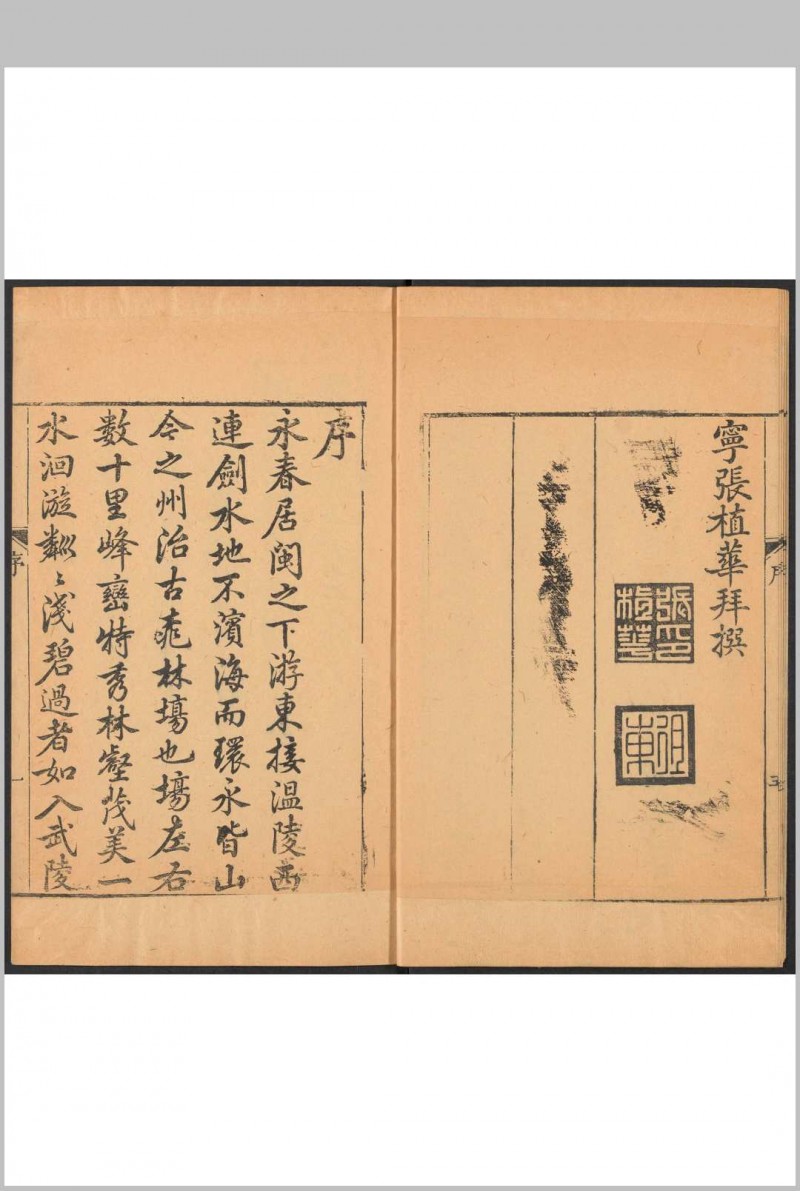 寧張植華拜撰
張植華印
祖東
序
五
序
永春居閩之下游東接溫陵西
連劍水地不濱海而環永皆山
今之州治古桃林塲也塲左右
數十里峰巒特秀林壑茂美一
水洄漩粼〻淺碧過者如入武陵
序
一